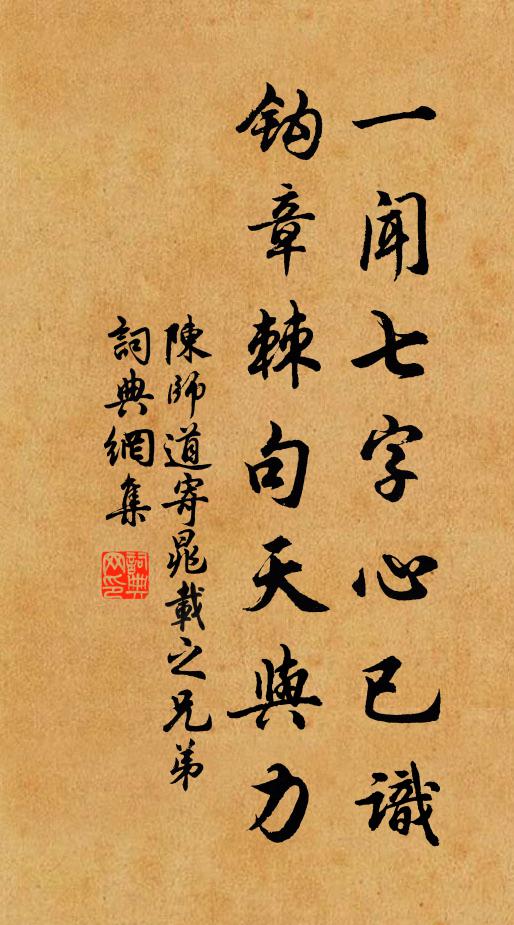 一聞七字心已識
鈎章棘句天與力
陳師道寄晁載之兄弟
詞典網集
詞典
网印